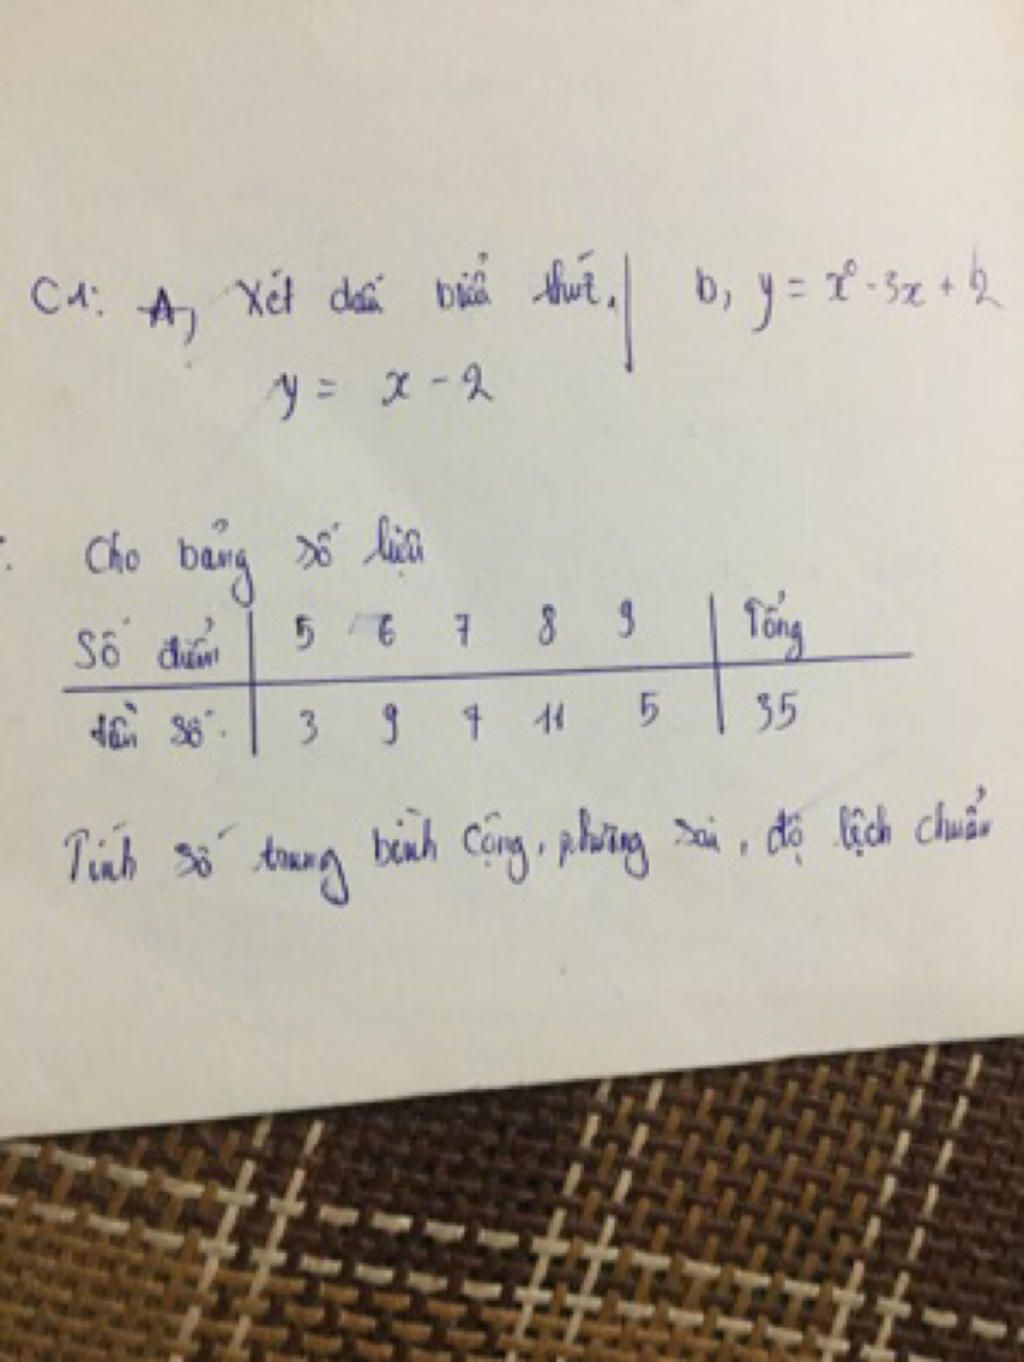 C1: A, Xét dấu biểu thức. | b, y = x² - 3x + 2
y = x - 2
Cho bảng số liệu
Số điểm 5 6 7 8 9 Tổng
tần số 3 9 7 11 5 35
Tính số trung bình cộng, phương sai, độ lệch chuẩn